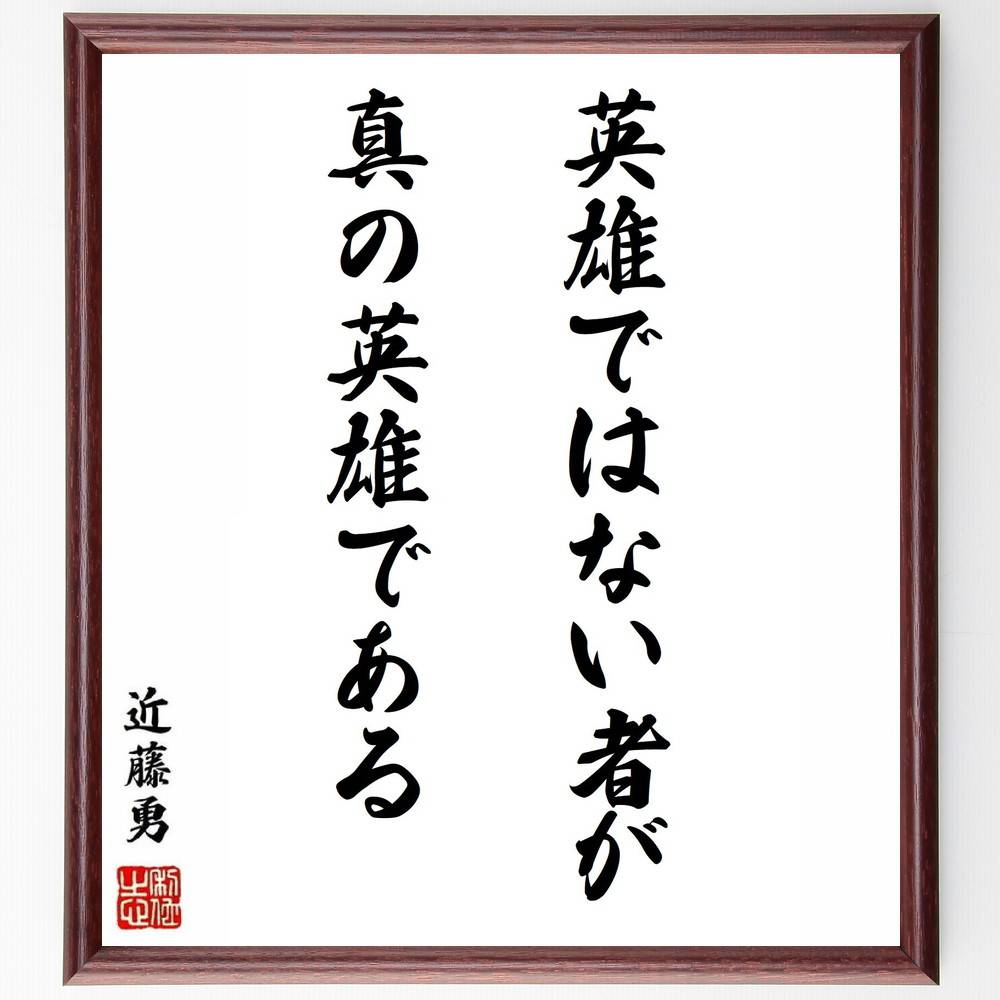 英雄ではない者が
真の英雄である
近藤勇